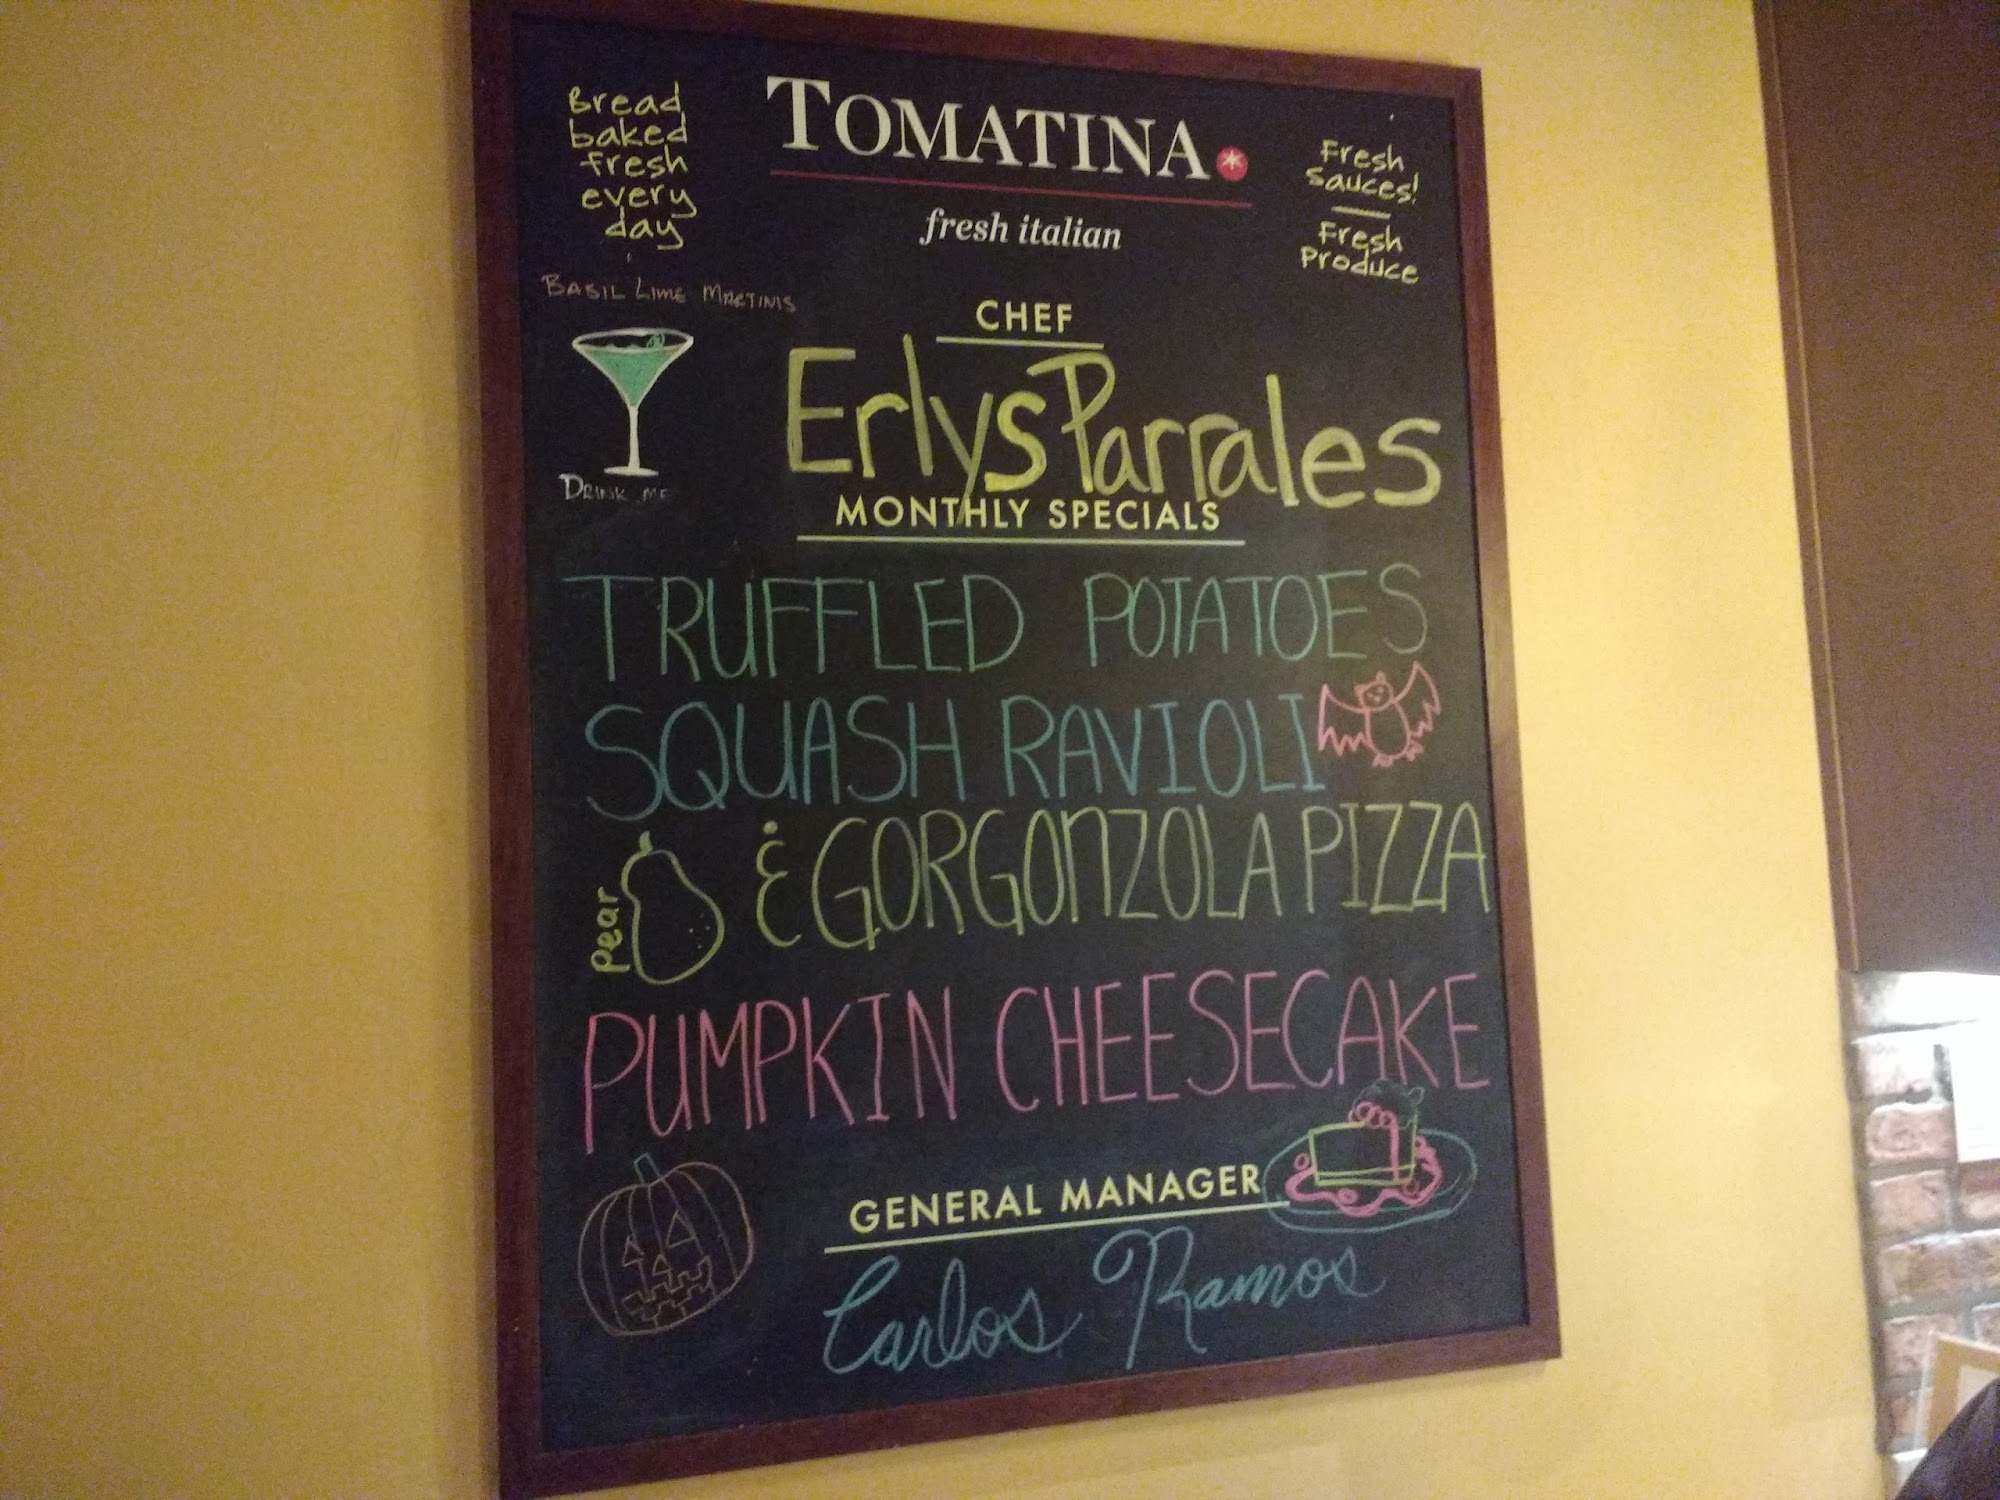 Bread
baked
fresh
every
day
TOMATINA
fresh italian
Fresh
Sauces!
Fresh
Produce
BASIL LIME MARTINIS
DRINK ME
CHEF
Erlys Parrales
MONTHLY SPECIALS
TRUFFLED POTATOES
SQUASH RAVIOLI
Pear
& GORGONZOLA PIZZA
PUMPKIN CHEESECAKE
GENERAL MANAGER
Carlos Ramos